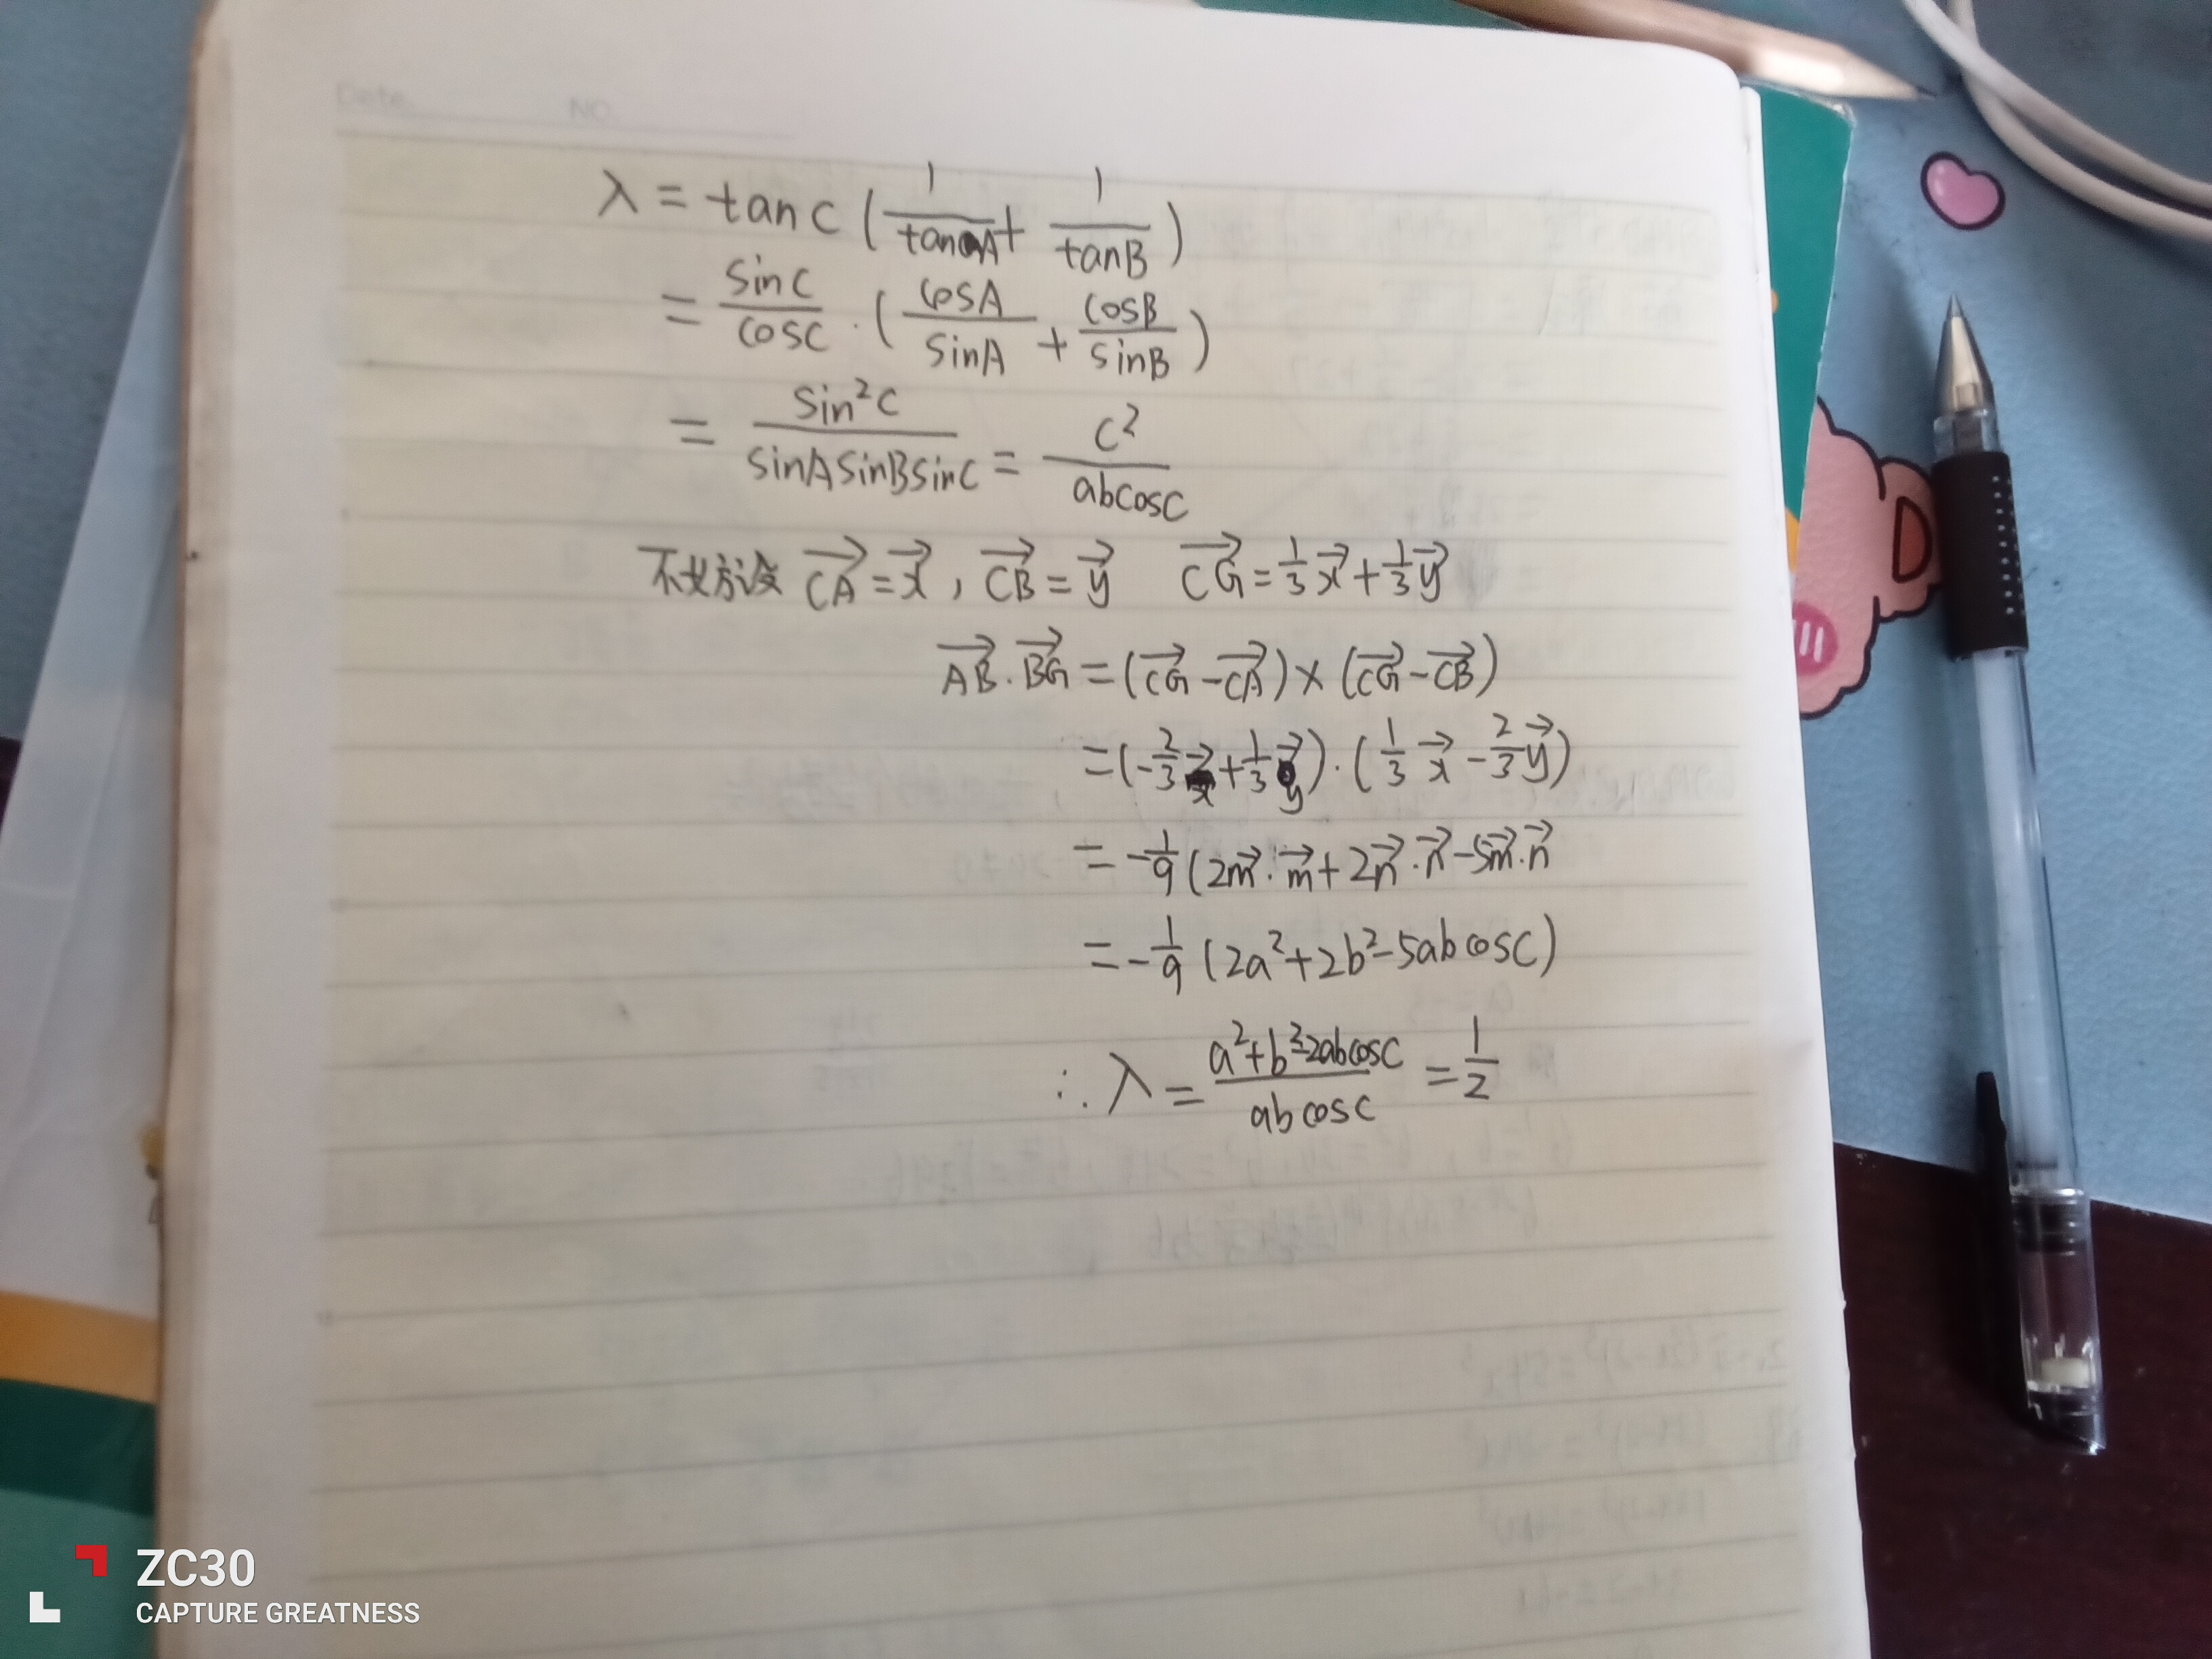 Date. NO.
λ = tanC (1/tanA + 1/tanB)
= sinC/cosC · (cosA/sinA + cosB/sinB)
= sin²C/sinAsinBsinC = c²/abcosC
不妨设 CA→ = x→, CB→ = y→ CG→ = 1/3 x→ + 1/3 y→
AB→ · BG→ = (CG→ - CA→) × (CG→ - CB→)
= (-2/3 x→ + 1/3 y→) · (1/3 x→ - 2/3 y→)
= -1/9 (2m→ · m→ + 2n→ · n→ - 5m→ · n→
= -1/9 (2a² + 2b² - 5abcosC)
∴ λ = a² + b² - 2abcosC/abcosC = 1/2
ZC30
CAPTURE GREATNESS